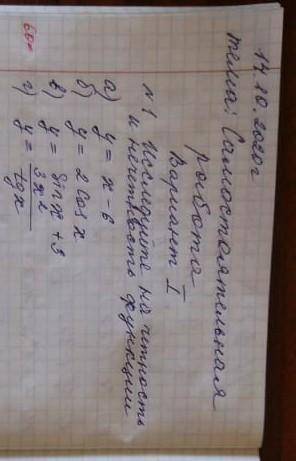 14.10.2020г
тема: Самостоятельная
работа
Вариант I
№1 Исследуйте на чётность
и нечётность функции
а) y = x - 6
б) y = 2 cos x
в) y = sin x + 3
г) y = 3x² / tg x